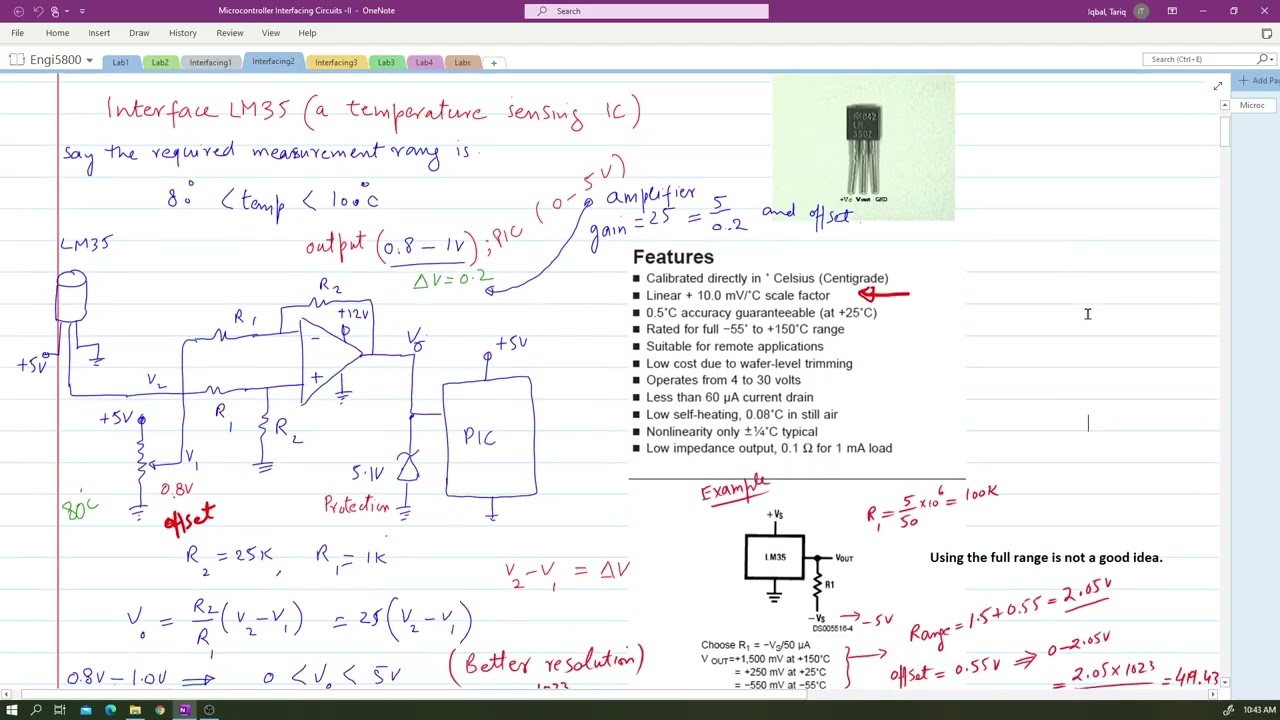 Microcontroller Interfacing Circuits -II - OneNote
Search
Iqbal, Tariq
IT
File Home Insert Draw History Review View Help
Engi5800
Lab1 Lab2 Interfacing1 Interfacing2 Interfacing3 Lab3 Lab4 Labs +
Search (Ctrl+E)
Add Pag
Microc
Interface LM35 (a temperature sensing IC)
say the required measurement rang is.
80° < temp < 100°C
output (0.8 - 1V) ; PIC (0-5V)
ΔV = 0.2
amplifier
gain = 25 = 5/0.2 and offset.
LM35
R2
+12V
R1
-
+
+5V
V2
R1
R2
Vo
+5V
PIC
5.1V
Protection
+5V
V1
0.8V
80°C
offset
R2 = 25K, R1 = 1K
V2 - V1 = ΔV
Vo = R2/R1 (V2 - V1) = 25 (V2 - V1)
0.8V - 1.0V ⇒ 0 < Vo < 5V
(Better resolution)
1023
042
LM
35DZ
+Vs Vout GND
Features
■ Calibrated directly in ° Celsius (Centigrade)
■ Linear + 10.0 mV/°C scale factor
■ 0.5°C accuracy guaranteeable (at +25°C)
■ Rated for full −55° to +150°C range
■ Suitable for remote applications
■ Low cost due to wafer-level trimming
■ Operates from 4 to 30 volts
■ Less than 60 µA current drain
■ Low self-heating, 0.08°C in still air
■ Nonlinearity only ±¼°C typical
■ Low impedance output, 0.1 Ω for 1 mA load
Example
R1 = 5/50 × 10^6 = 100K
+VS
LM35
VOUT
R1
−VS
DS005516-4
→ -5V
Using the full range is not a good idea.
Choose R1 = −VS/50 µA
V OUT=+1,500 mV at +150°C
= +250 mV at +25°C
= −550 mV at −55°C
Range = 1.5 + 0.55 = 2.05V
offset = 0.55V ⇒ 0 - 2.05V
= 2.05 × 1023 = 419.43
10:43 AM